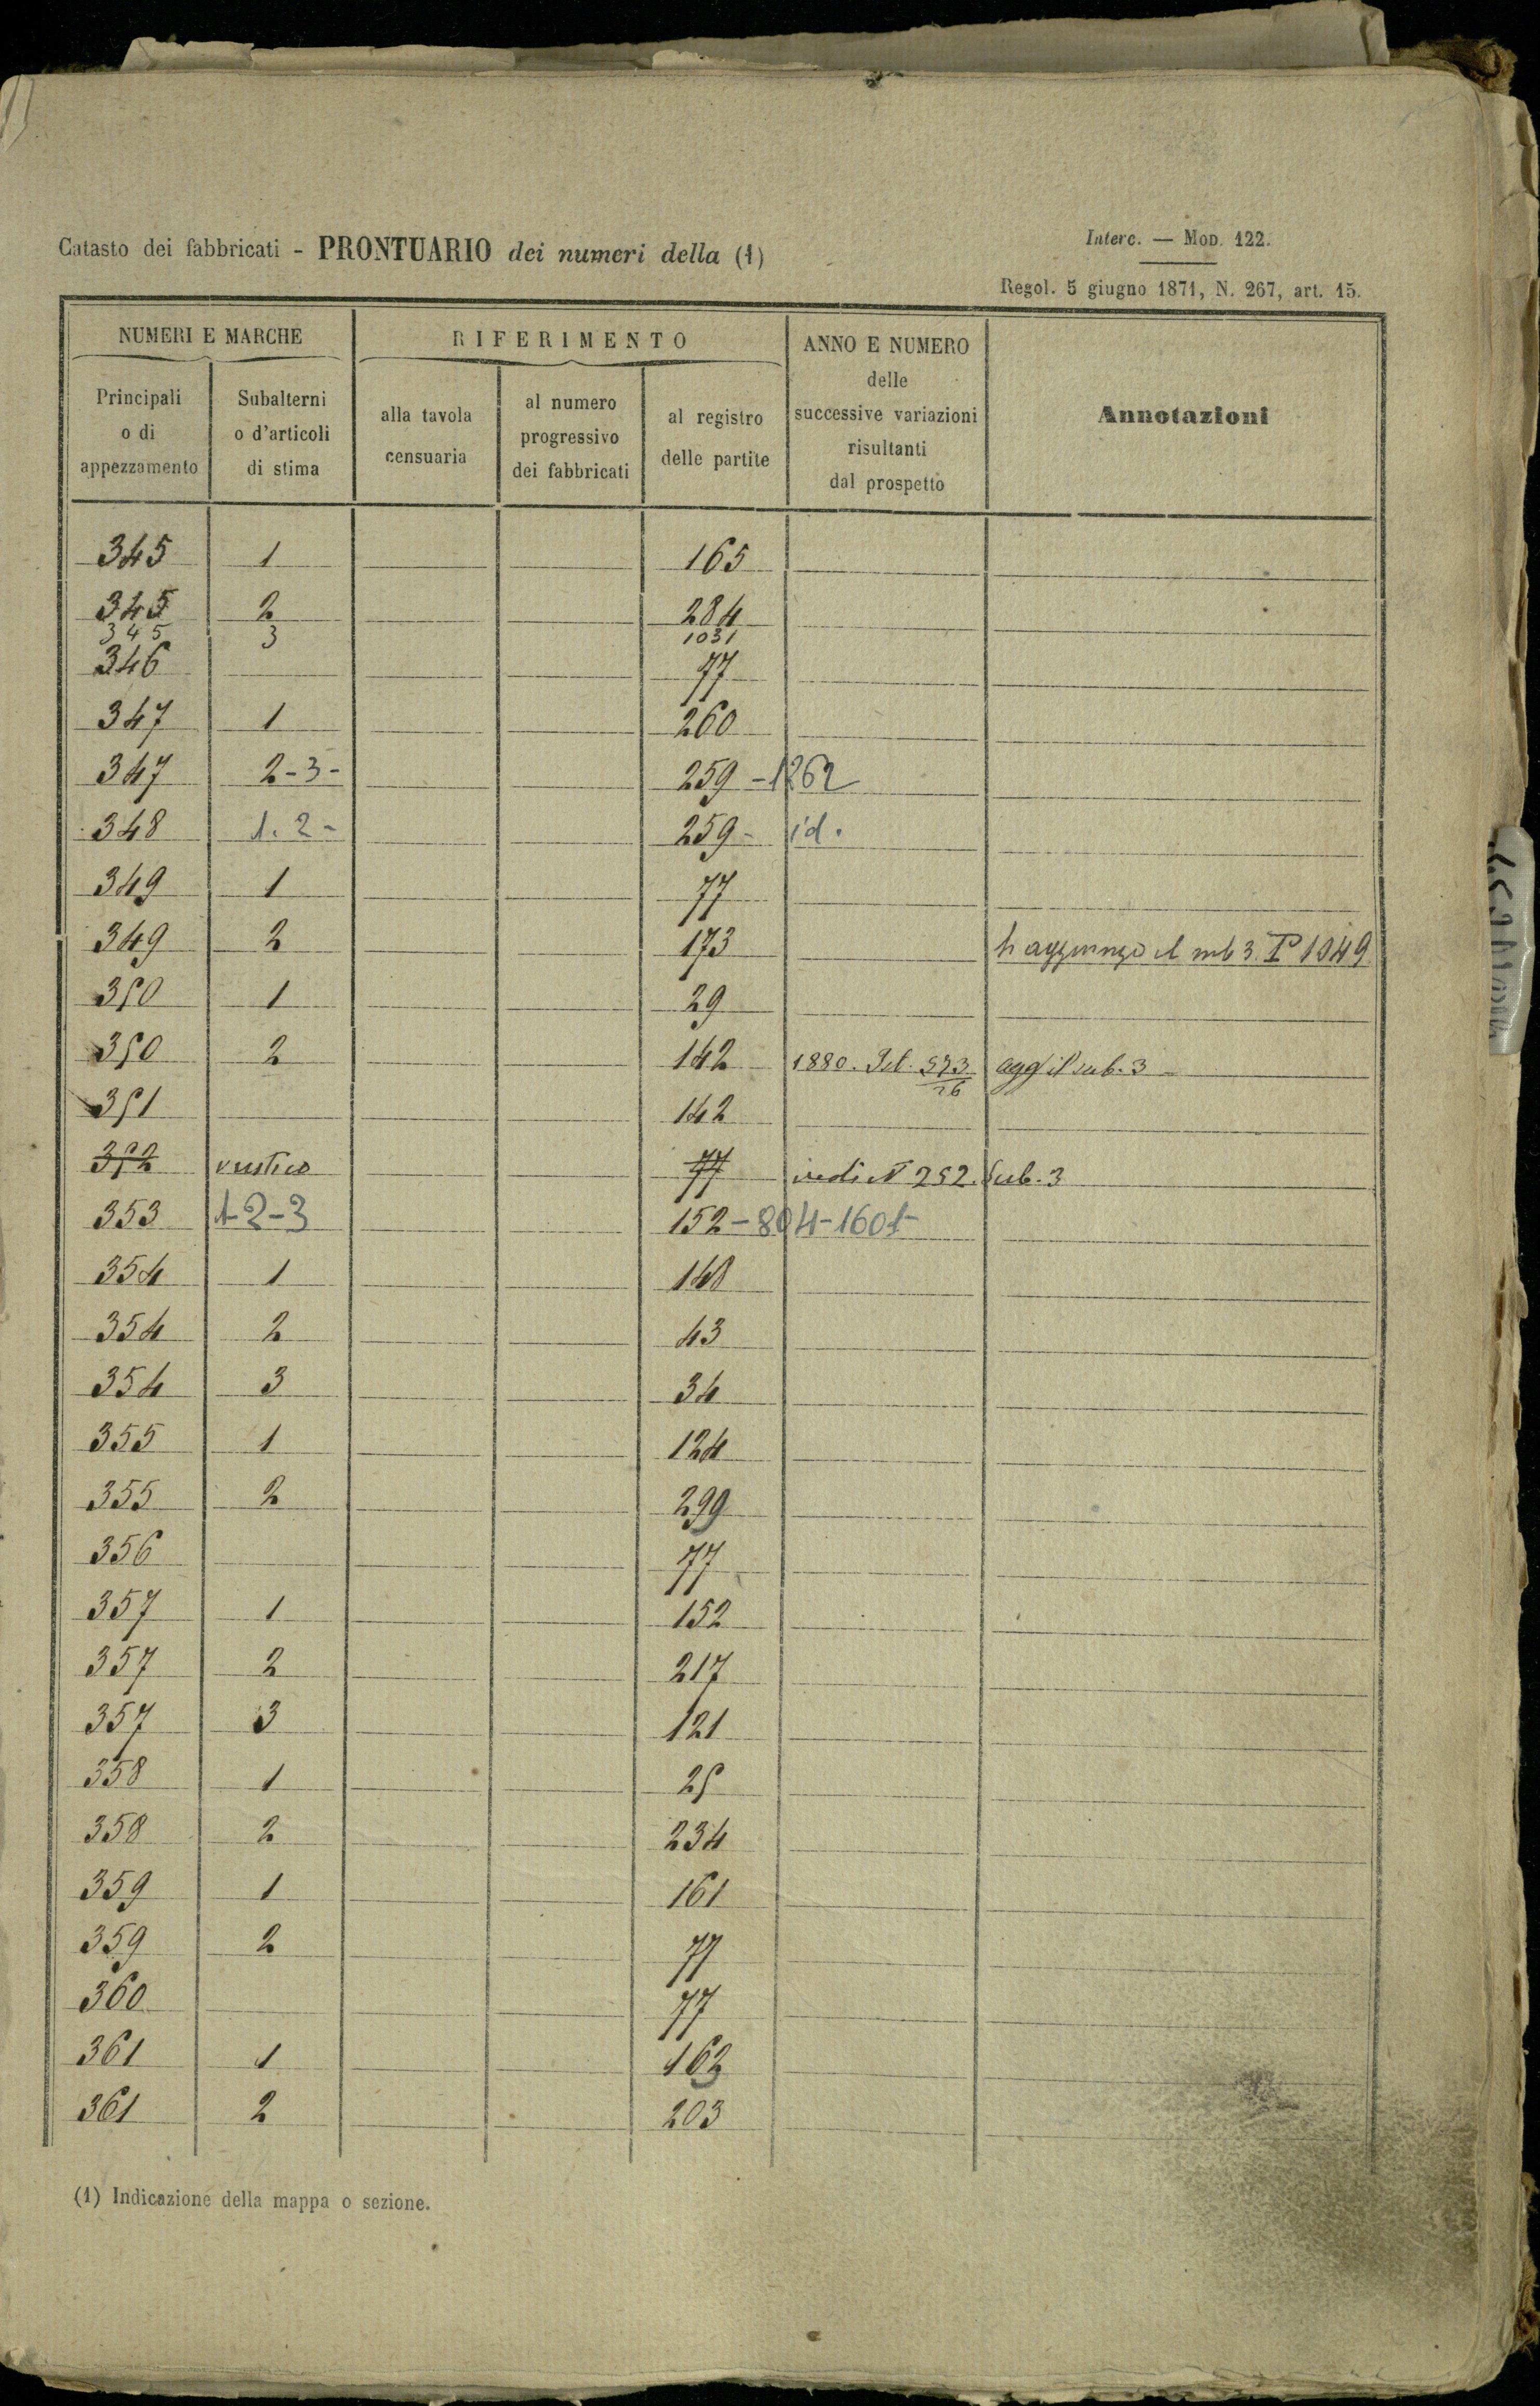 Catasto dei fabbricati - PRONTUARIO dei numeri della (1)
Interc. — Mod. 122.
Regol. 5 giugno 1871, N. 267, art. 15.
NUMERI E MARCHE
RIFERIMENTO
ANNO E NUMERO
delle
successive variazioni
risultanti
dal prospetto
Annotazioni
Principali
o di
appezzamento
Subalterni
o d'articoli
di stima
alla tavola
censuaria
al numero
progressivo
dei fabbricati
al registro
delle partite
345 1 165
345 2 284
345 3 1031
346 77
347 1 260
347 2-3- 259 - 1262
348 1. 2 - 259 - id.
349 1 77
349 2 173 aggiunge il sub 3. P 1049
350 1 29
350 2 142 1880. 573/26 agg il sub. 3 -
351 142
352 rustico 77 vedi N 252. Sub. 3
353 1-2-3 152 - 804 - 1601-
354 1 148
354 2 43
354 3 34
355 1 124
355 2 299
356 77
357 1 152
357 2 217
357 3 121
358 1 25
358 2 234
359 1 161
359 2 77
360 77
361 1 162
361 2 203
(1) Indicazione della mappa o sezione.